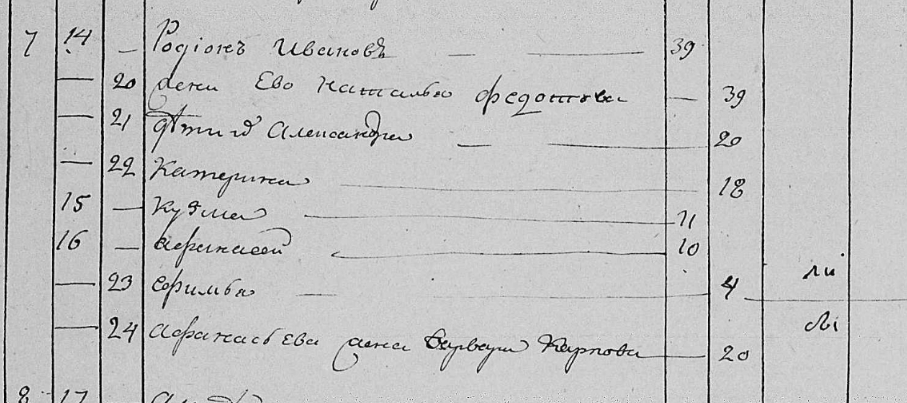 7 14 — Родіонъ Ивановъ — — 39
— 20 жена Ево Наталья Федотова — 39
— 21 дѣти ихъ Александра — — 20
— 22 Катерина — 18
15 — Кузма — 11
16 — Афанасей — 10
— 23 Ефимья — 4
— 24 Афанасьева жена Варвара Карпова — 20
8 17